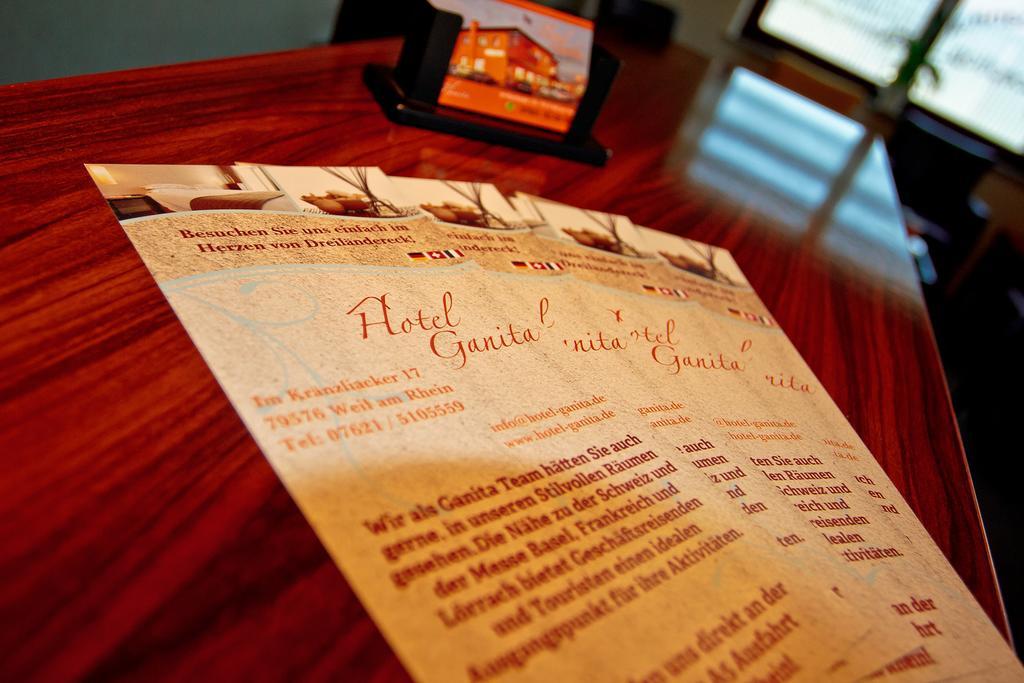 Besuchen Sie uns einfach im
Herzen von Dreiländereck!
Hotel
Ganita
Im Kränzliacker 17
79576 Weil am Rhein
Tel: 07621 / 5105559
info@hotel-ganita.de
www.hotel-ganita.de
Wir als Ganita Team hätten Sie auch
gerne, in unseren Stilvollen Räumen
gesehen. Die Nähe zu der Schweiz und
der Messe Basel, Frankreich und
Lörrach bietet Geschäftsreisenden
und Touristen einen Idealen
Ausgangspunkt für ihre Aktivitäten.
uns direkt an der
A5 Ausfahrt